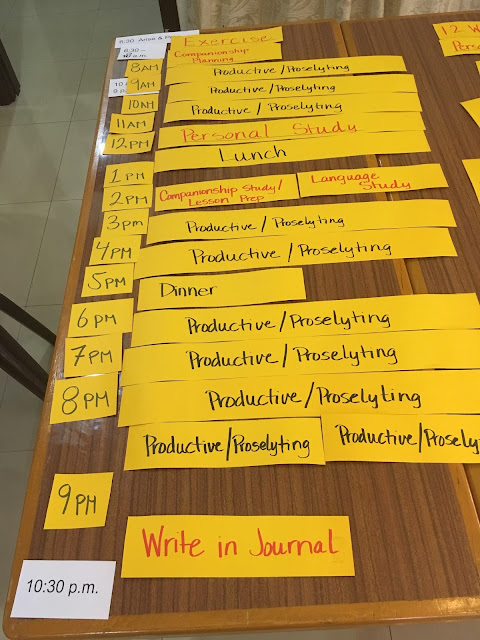 6:30 Arise & P
Exercise
Companionship
Planning
8AM
Productive/Proselyting
9AM
Productive/Proselyting
10AM
Productive/Proselyting
11AM
Personal Study
12 PM
Lunch
1 PM
Companionship Study/
Lesson Prep
Language
Study
2PM
3pm
Productive/Proselyting
4PM
Productive/Proselyting
5PM
Dinner
6 PM
Productive/Proselyting
7PM
Productive/Proselyting
8 PM
Productive/Proselyting
Productive/Proselyting
Productive/Prosely
9 PM
Write in Journal
10:30 p.m.
12 W
Perso